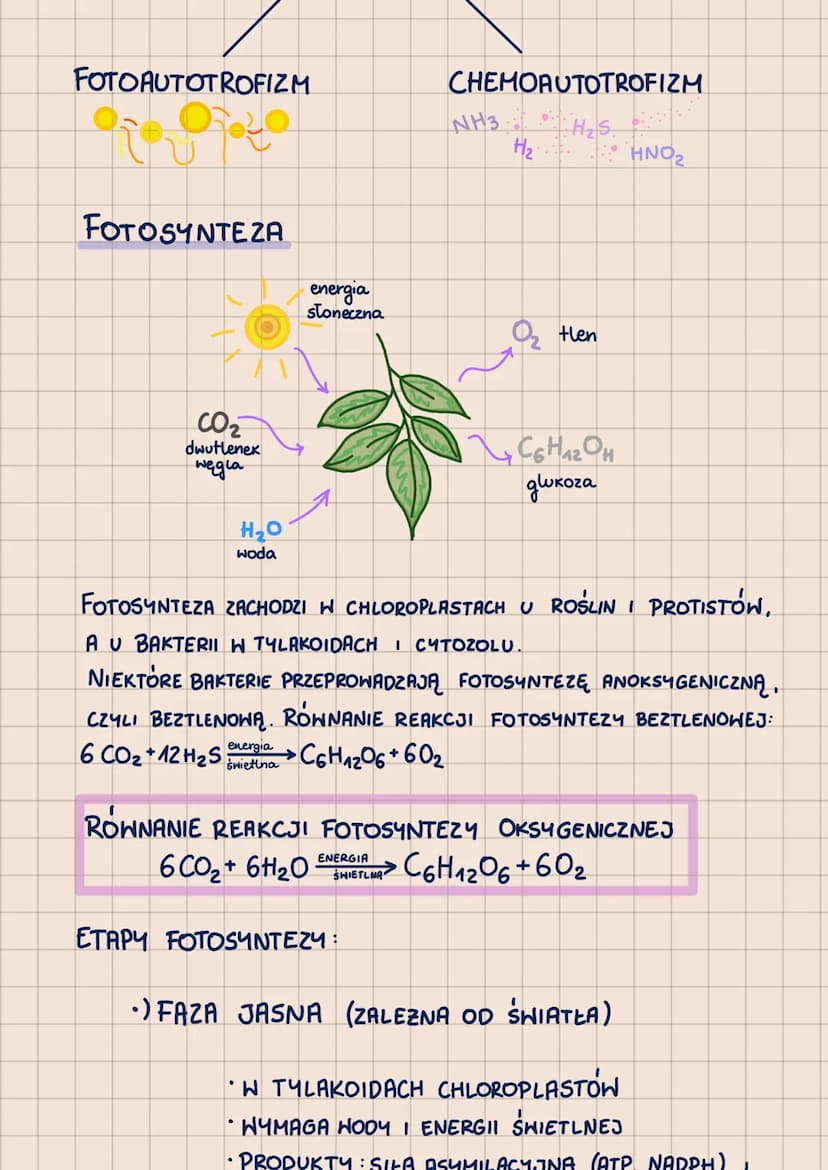 FOTOAUTOTROFIZM
CHEMOAUTOTROFIZM
NH3
H₂S
H₂
HNO₂
FOTOSYNTEZA
energia
słoneczna
O₂ tlen
CO₂
dwutlenek
węgla
C₆H₁₂OH
glukoza
H₂O
woda
FOTOSYNTEZA ZACHODZI W CHLOROPLASTACH U ROŚLIN I PROTISTÓW,
A U BAKTERII W TYLAKOIDACH I CYTOZOLU.
NIEKTÓRE BAKTERIE PRZEPROWADZAJĄ FOTOSYNTEZĘ ANOKSYGENICZNĄ,
CZYLI BEZTLENOWĄ. RÓWNANIE REAKCJI FOTOSYNTEZY BEZTLENOWEJ:
6 CO₂ + 12 H₂S energia świetlna → C₆H₁₂O₆ + 6O₂
RÓWNANIE REAKCJI FOTOSYNTEZY OKSYGENICZNEJ
6CO₂ + 6H₂O ENERGIA ŚWIETLNA → C₆H₁₂O₆ + 6O₂
ETAPY FOTOSYNTEZY:
•) FAZA JASNA (ZALEŻNA OD ŚWIATŁA)
• W TYLAKOIDACH CHLOROPLASTÓW
• WYMAGA WODY I ENERGII ŚWIETLNEJ
• PRODUKTY: SIŁA ASYMILACYJNA (ATP, NADPH) I